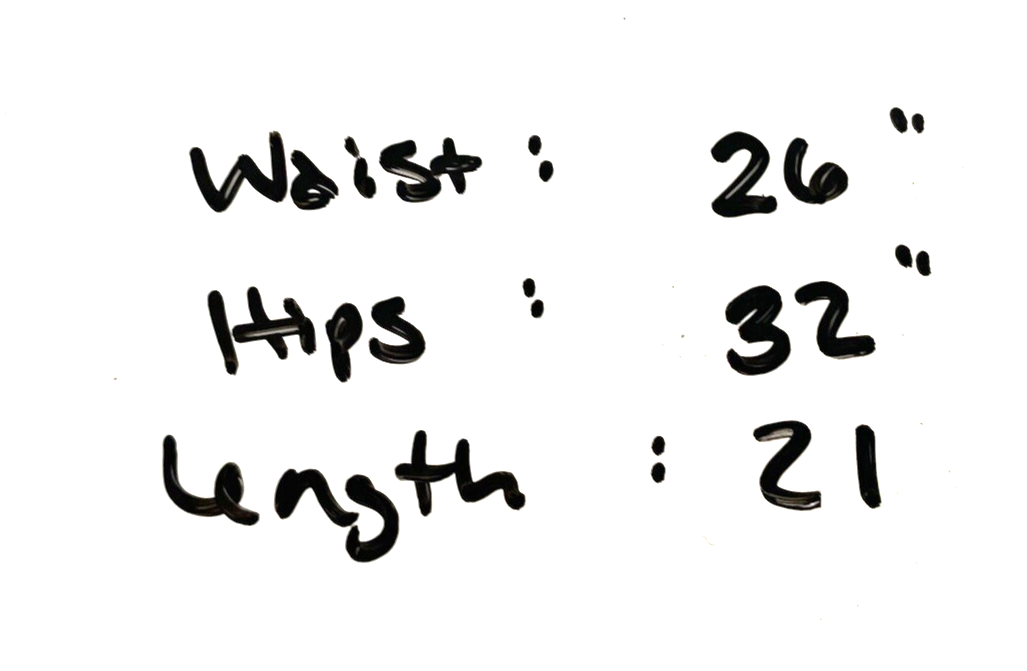 Waist : 26"
Hips : 32"
Length : 21